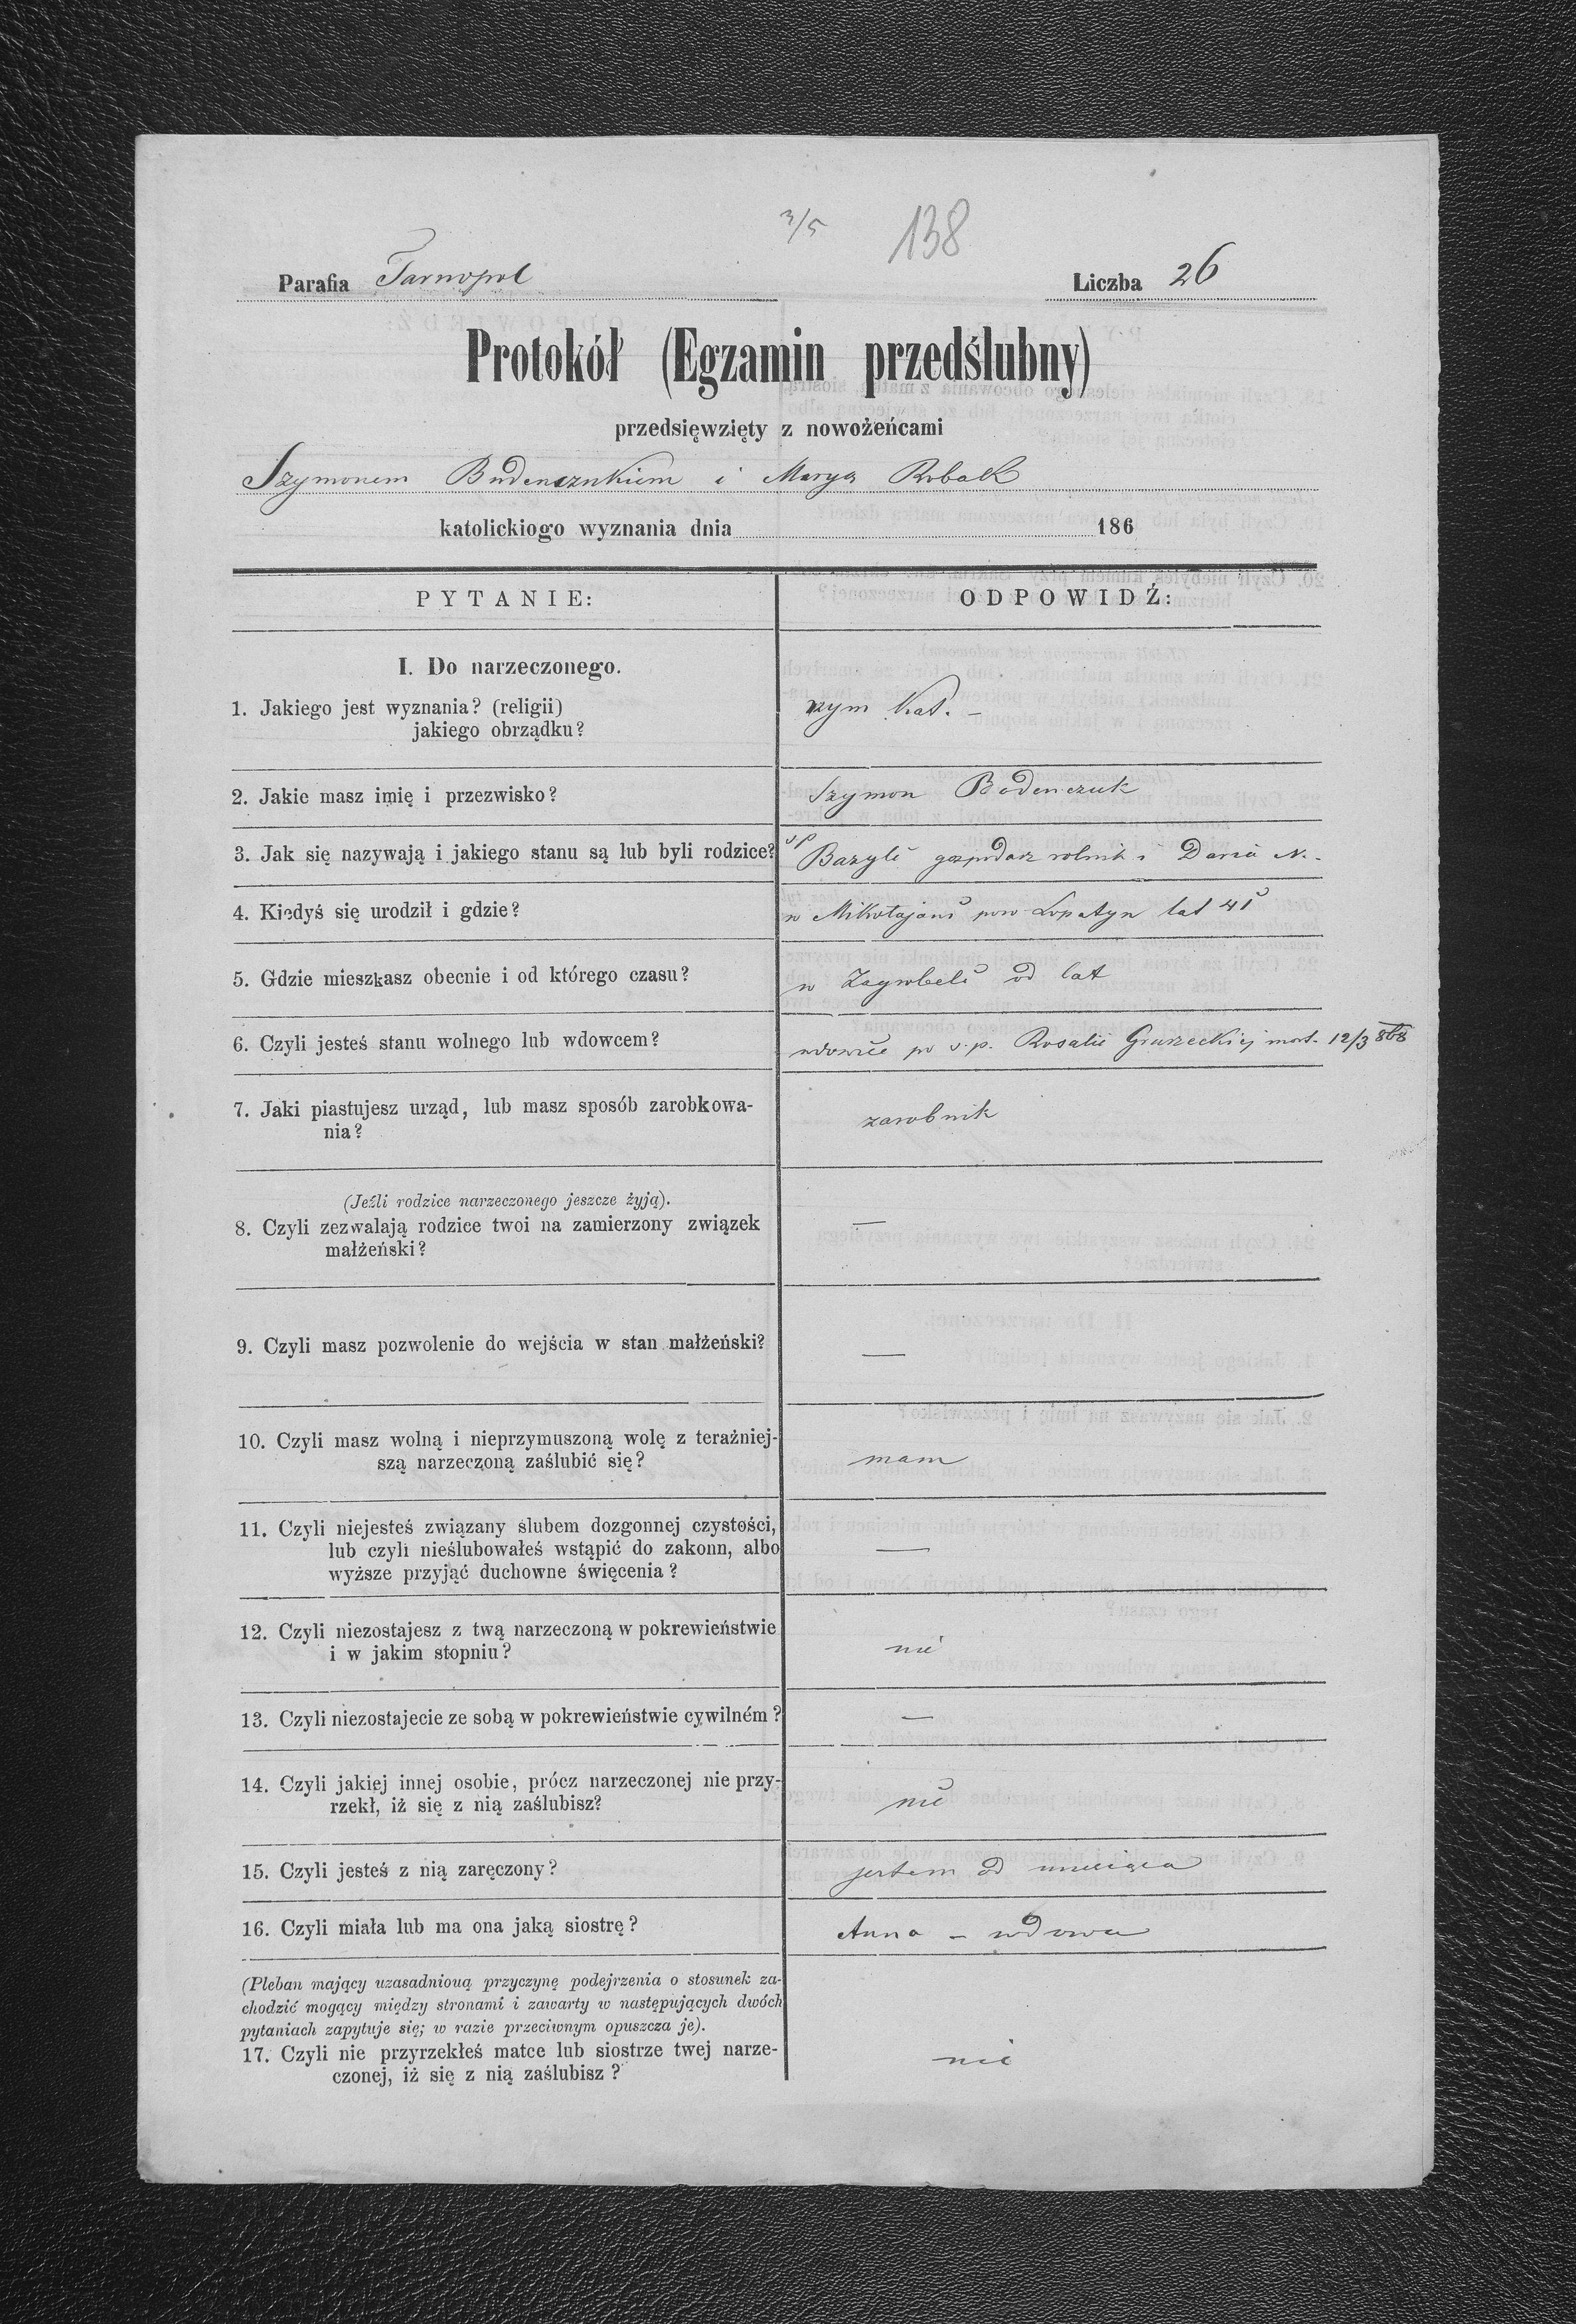 3/5 138
Parafia Tarnopol Liczba 26
Protokół (Egzamin przedślubny)
przedsięwzięty z nowożeńcami
Szymonem Budenczukiem i Marya Robak
katolickiogo wyznania dnia 186
PYTANIE: ODPOWIDŹ:
I. Do narzeczonego.
1. Jakiego jest wyznania? (religii) rzym kat. –
jakiego obrządku?
2. Jakie masz imię i przezwisko? Szymon Budenczuk
3. Jak się nazywają i jakiego stanu są lub byli rodzice? sp Bazyli gospodarz rolnik i Daria N.
4. Kiedyś się urodził i gdzie? w Mikołajowi pow Lopatyn lat 41
5. Gdzie mieszkasz obecnie i od którego czasu? w Zagrobeli od lat
6. Czyli jesteś stanu wolnego lub wdowcem? wdowiec po s.p. Rosalii mort. 12/3 868
7. Jaki piastujesz urząd, lub masz sposób zarobkowa- zarobnik
nia?
(Jeźli rodzice narzeczonego jeszcze żyją).
8. Czyli zezwalają rodzice twoi na zamierzony związek —
małżeński?
9. Czyli masz pozwolenie do wejścia w stan małżeński? —
10. Czyli masz wolną i nieprzymuszoną wolę z teraźniej-
szą narzeczoną zaślubić się? mam
11. Czyli niejesteś związany ślubem dozgonnej czystości,
lub czyli nieślubowałeś wstąpić do zakonn, albo —
wyższe przyjąć duchowne święcenia?
12. Czyli niezostajesz z twą narzeczoną w pokrewieństwie
i w jakim stopniu? nie
13. Czyli niezostajecie ze sobą w pokrewieństwie cywilném? —
14. Czyli jakiej innej osobie, prócz narzeczonej nie przy-
rzekł, iż się z nią zaślubisz? nie
15. Czyli jesteś z nią zaręczony? jestem od miesiąca
16. Czyli miała lub ma ona jaką siostrę? Anna – wdowa
(Pleban mający uzasadnioną przyczynę podejrzenia o stosunek za-
chodzić mogący między stronami i zawarty w następujących dwóch
pytaniach zapytuje się; w razie przeciwnym opuszcza je).
17. Czyli nie przyrzekłeś matce lub siostrze twej narze- nie
czonej, iż się z nią zaślubisz?